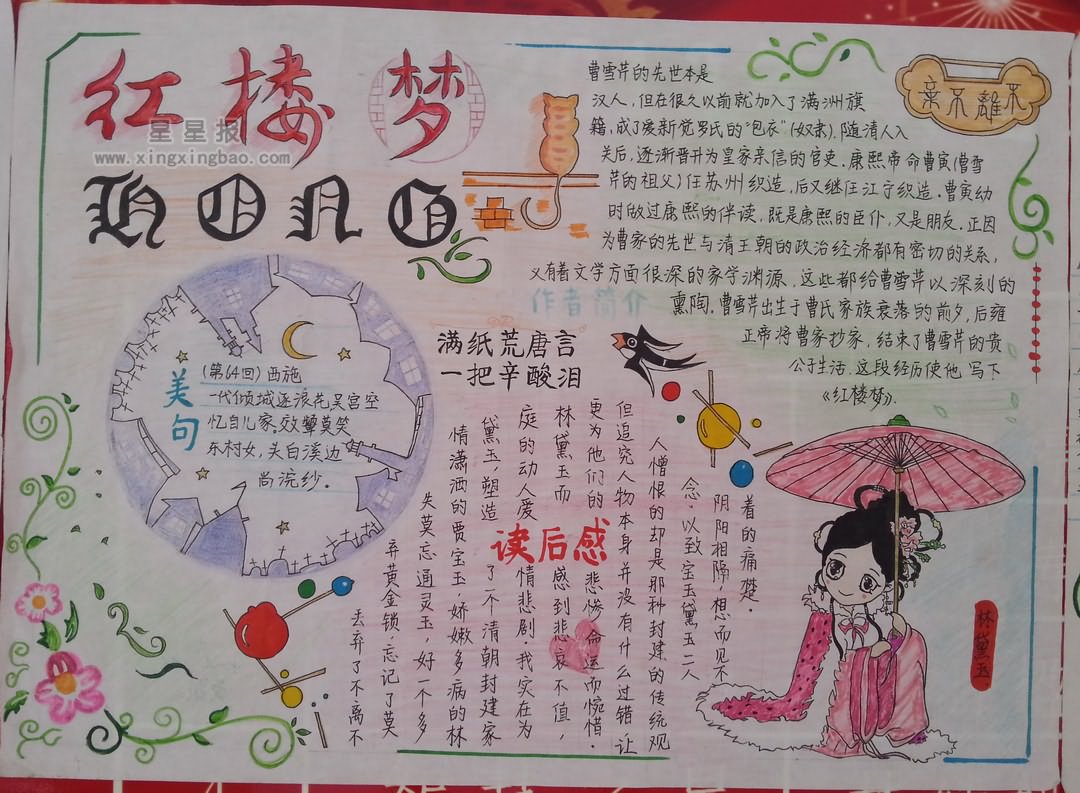 红楼梦
星星报
www.xingxingbao.com
HONG
曹雪芹的先世本是
汉人，但在很久以前就加入了满洲旗
籍，成了爱新觉罗氏的“包衣”(奴隶).随清人入
关后，逐渐晋升为皇家亲信的官吏.康熙帝命曹寅(曹雪
芹的祖父)任苏州织造，后又继任江宁织造.曹寅幼
时做过康熙的伴读，既是康熙的臣仆，又是朋友.正因
为曹家的先世与清王朝的政治经济都有密切的关系，
又有着文学方面很深的家学渊源，这些都给曹雪芹以深刻的
熏陶.曹雪芹出生于曹氏家族衰落的前夕，后雍
正帝将曹家抄家，结束了曹雪芹的贵
公子生活.这段经历使他写下
《红楼梦》.
作者简介
棄不離不
满纸荒唐言
一把辛酸泪
美句
(第64回)西施
一代倾城逐浪花吴宫空
忆自儿家.效颦莫笑
东村女，头白溪边
尚浣纱.
读后感
丢弃了不离不
弃黄金锁，忘记了莫
失莫忘通灵玉，好一个多
情潇洒的贾宝玉，娇嫩多病的林
黛玉，塑造了一个清朝封建家
庭的动人爱情悲剧我实在为
林黛玉而感到悲哀不值，
更为他们的悲惨命运而惋惜.
但追究人物本身并没有什么过错让
人憎恨的却是那种封建的传统观
念.以致宝玉黛玉二人
阴阳相隔，想而见不
着的痛楚.
林黛玉